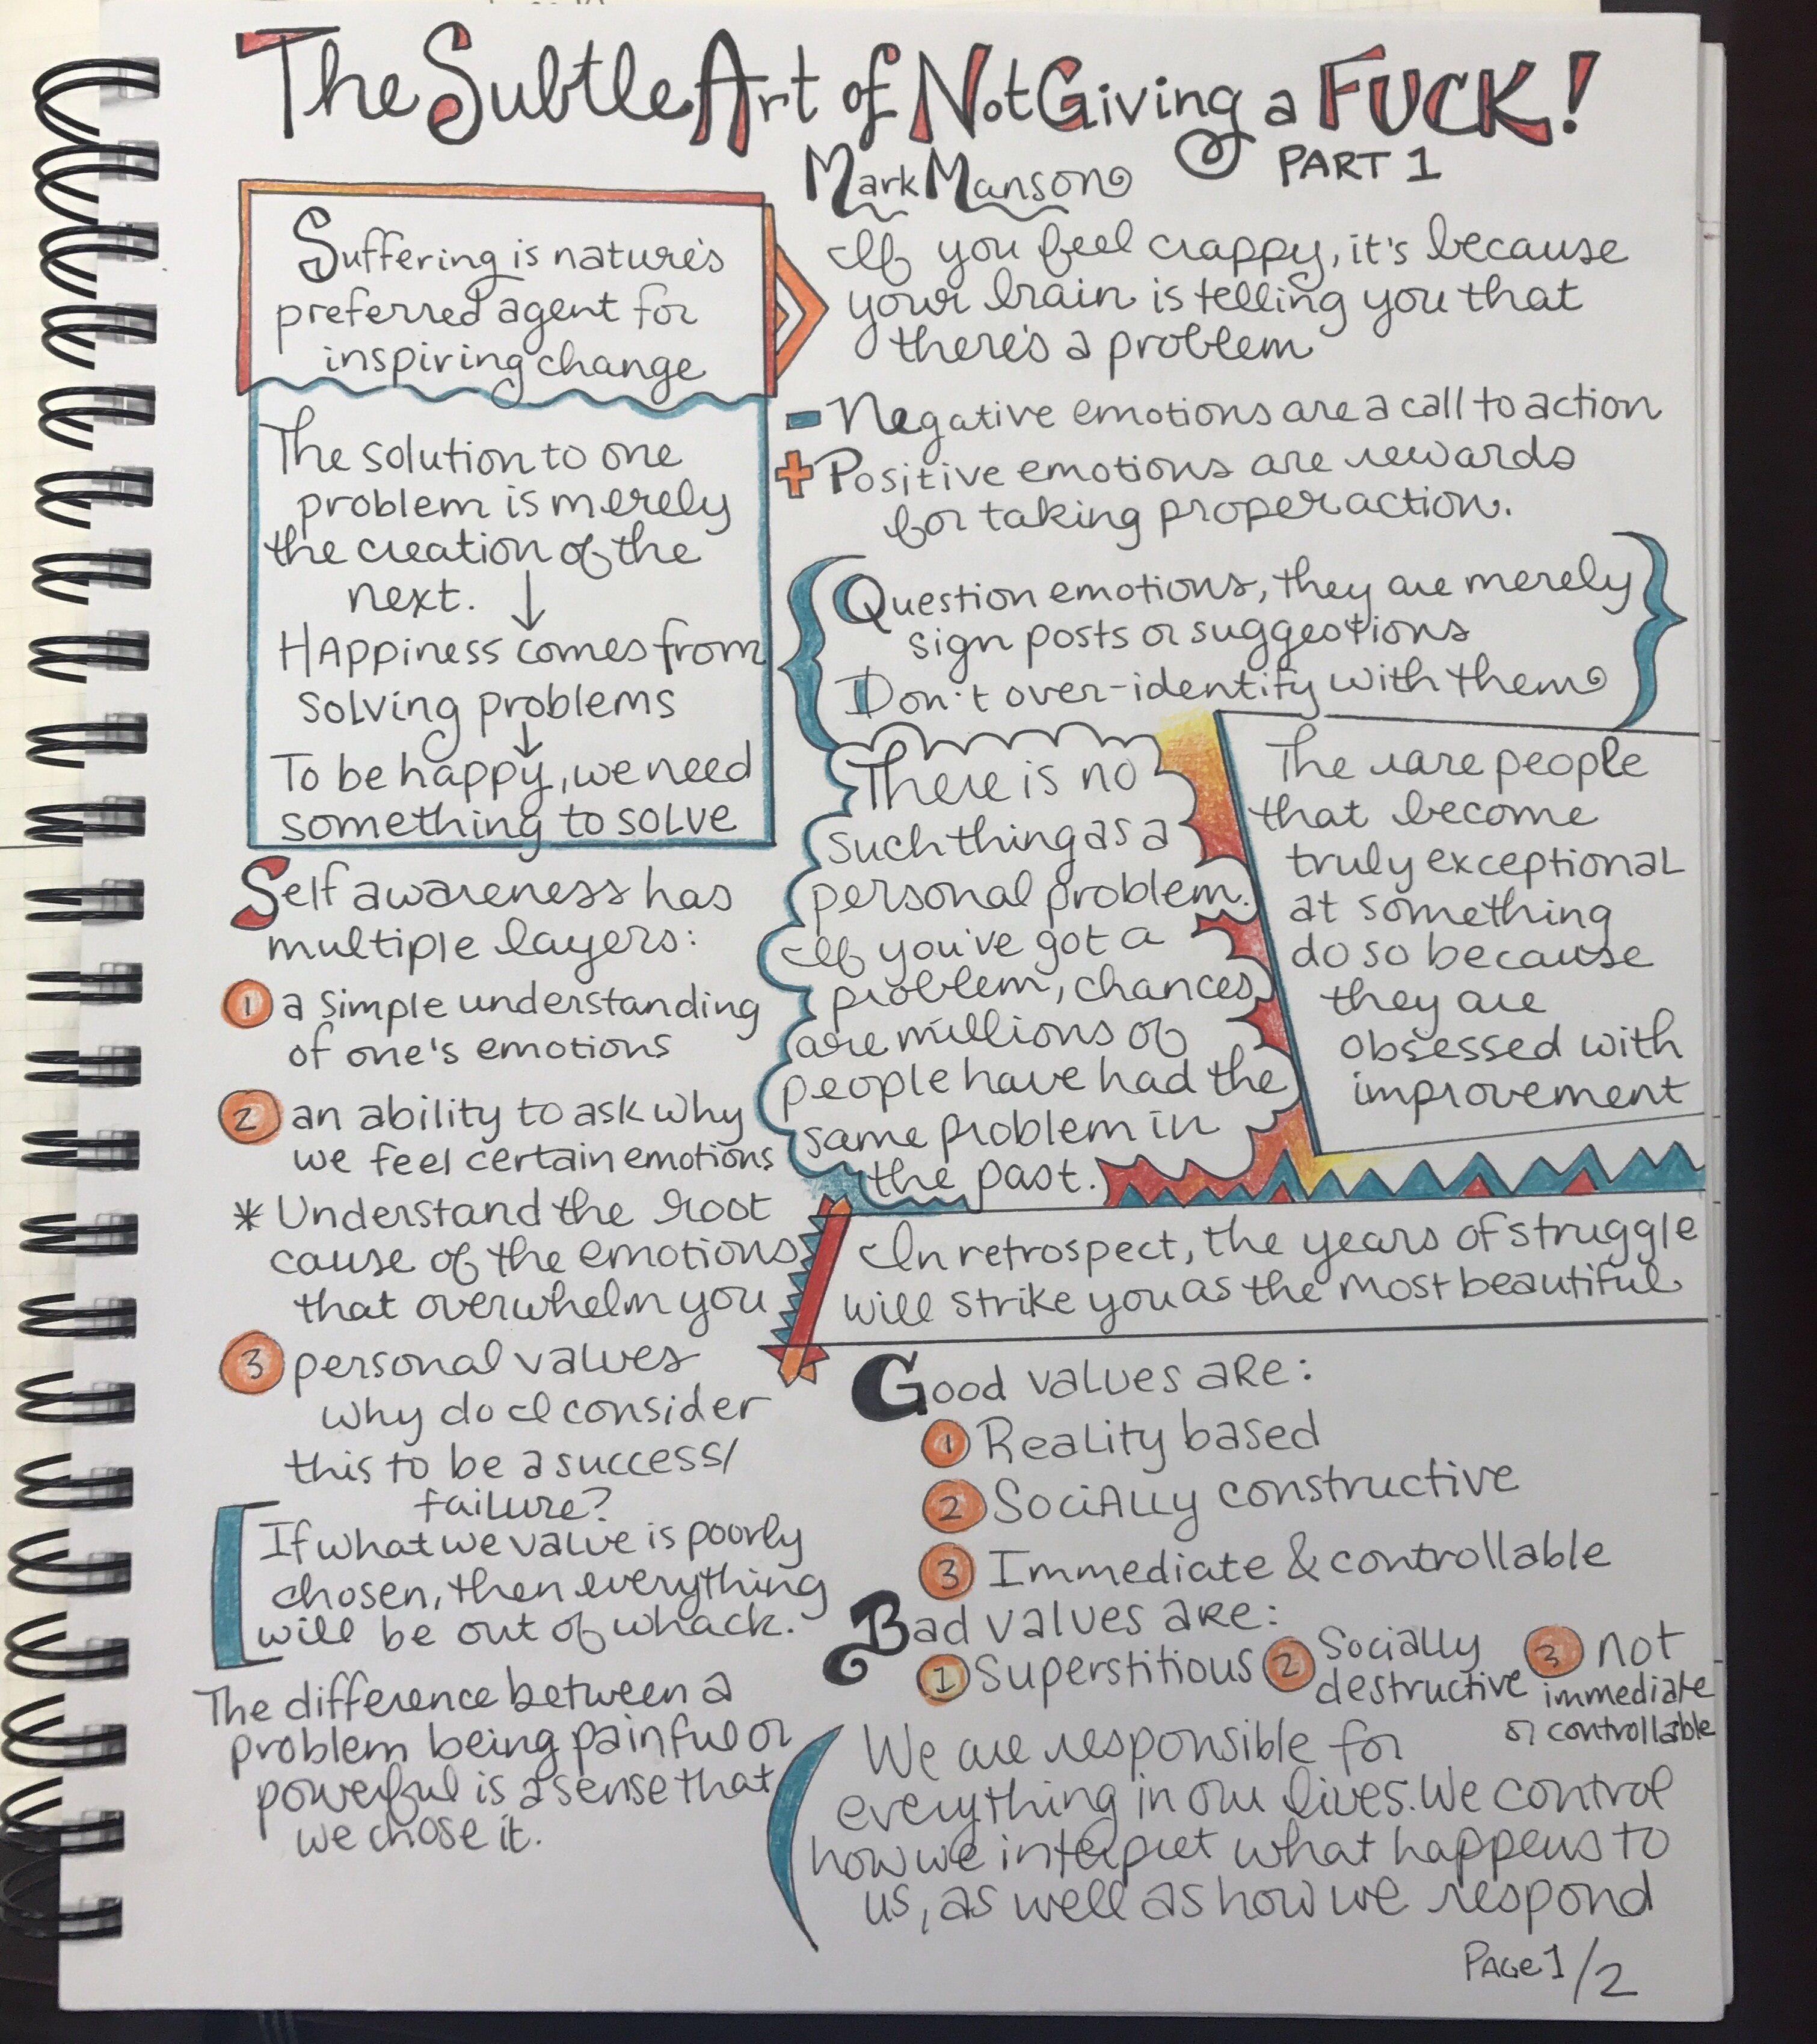 The Subtle Art of Not Giving a FUCK!
Mark Manson
PART 1
Suffering is nature's
preferred agent for
inspiring change
If you feel crappy, it's because
your brain is telling you that
there's a problem
- Negative emotions are a call to action
+ Positive emotions are rewards
for taking proper action.
The solution to one
problem is merely
the creation of the
next. ↓
Happiness comes from
solving problems
↓
To be happy, we need
something to solve
{Question emotions, they are merely
sign posts or suggestions
Don't over-identify with them}
There is no
such thing as a
personal problem.
If you've got a
problem, chances
are millions of
people have had the
same problem in
the past.
The rare people
that become
truly exceptional
at something
do so because
they are
obsessed with
improvement
Self awareness has
multiple layers:
1 a simple understanding
of one's emotions
2 an ability to ask why
we feel certain emotions
* Understand the root
cause of the emotions
that overwhelm you
3 personal values
why do I consider
this to be a success/
failure?
[If what we value is poorly
chosen, then everything
will be out of whack.
The difference between a
problem being painful or
powerful is a sense that
we chose it.
In retrospect, the years of struggle
will strike you as the most beautiful
Good values are:
1 Reality based
2 Socially constructive
3 Immediate & controllable
Bad values are:
1 Superstitious
2 Socially
destructive
3 not
immediate
or controllable
(We are responsible for
everything in our lives. We control
how we interpret what happens to
us, as well as how we respond
Page 1/2